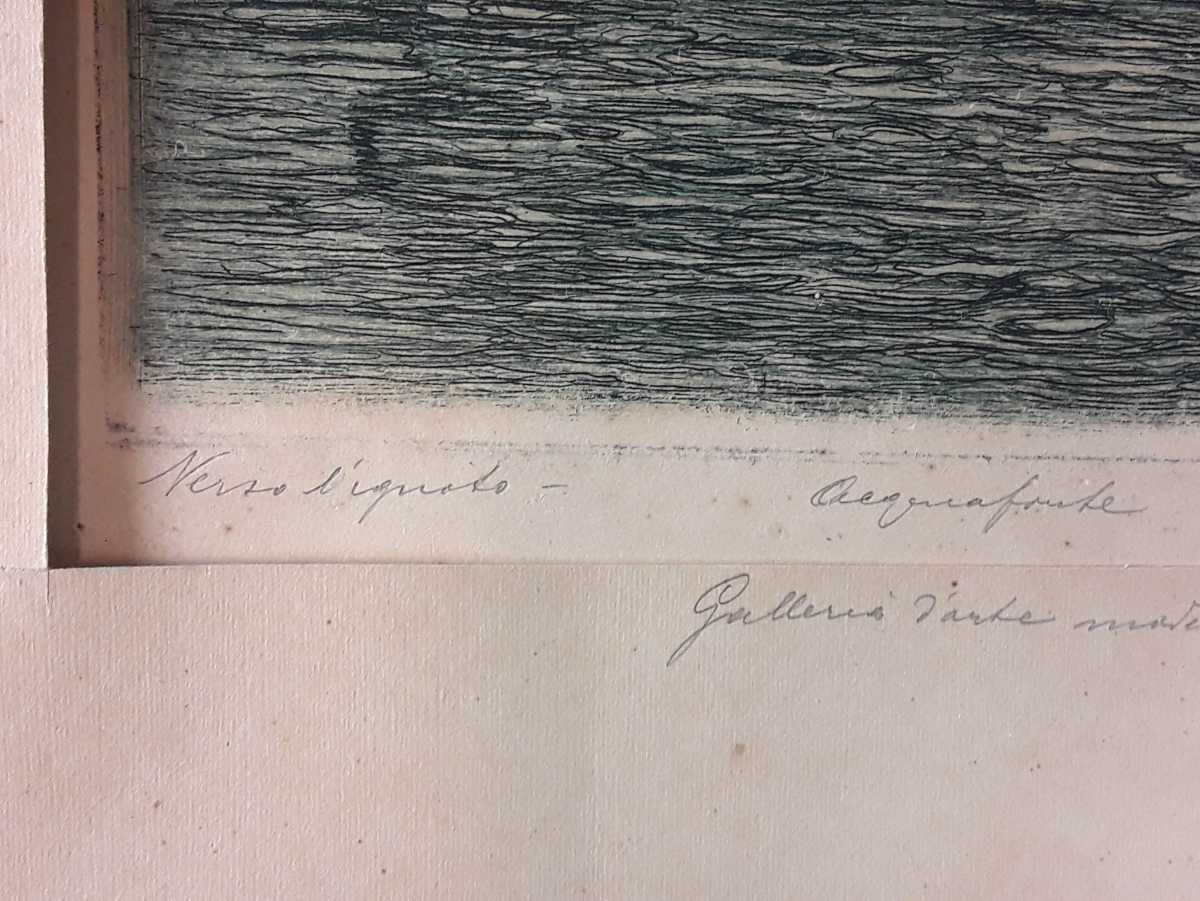 Verso l'ignoto - Acquaforte
Galleria d'arte mode